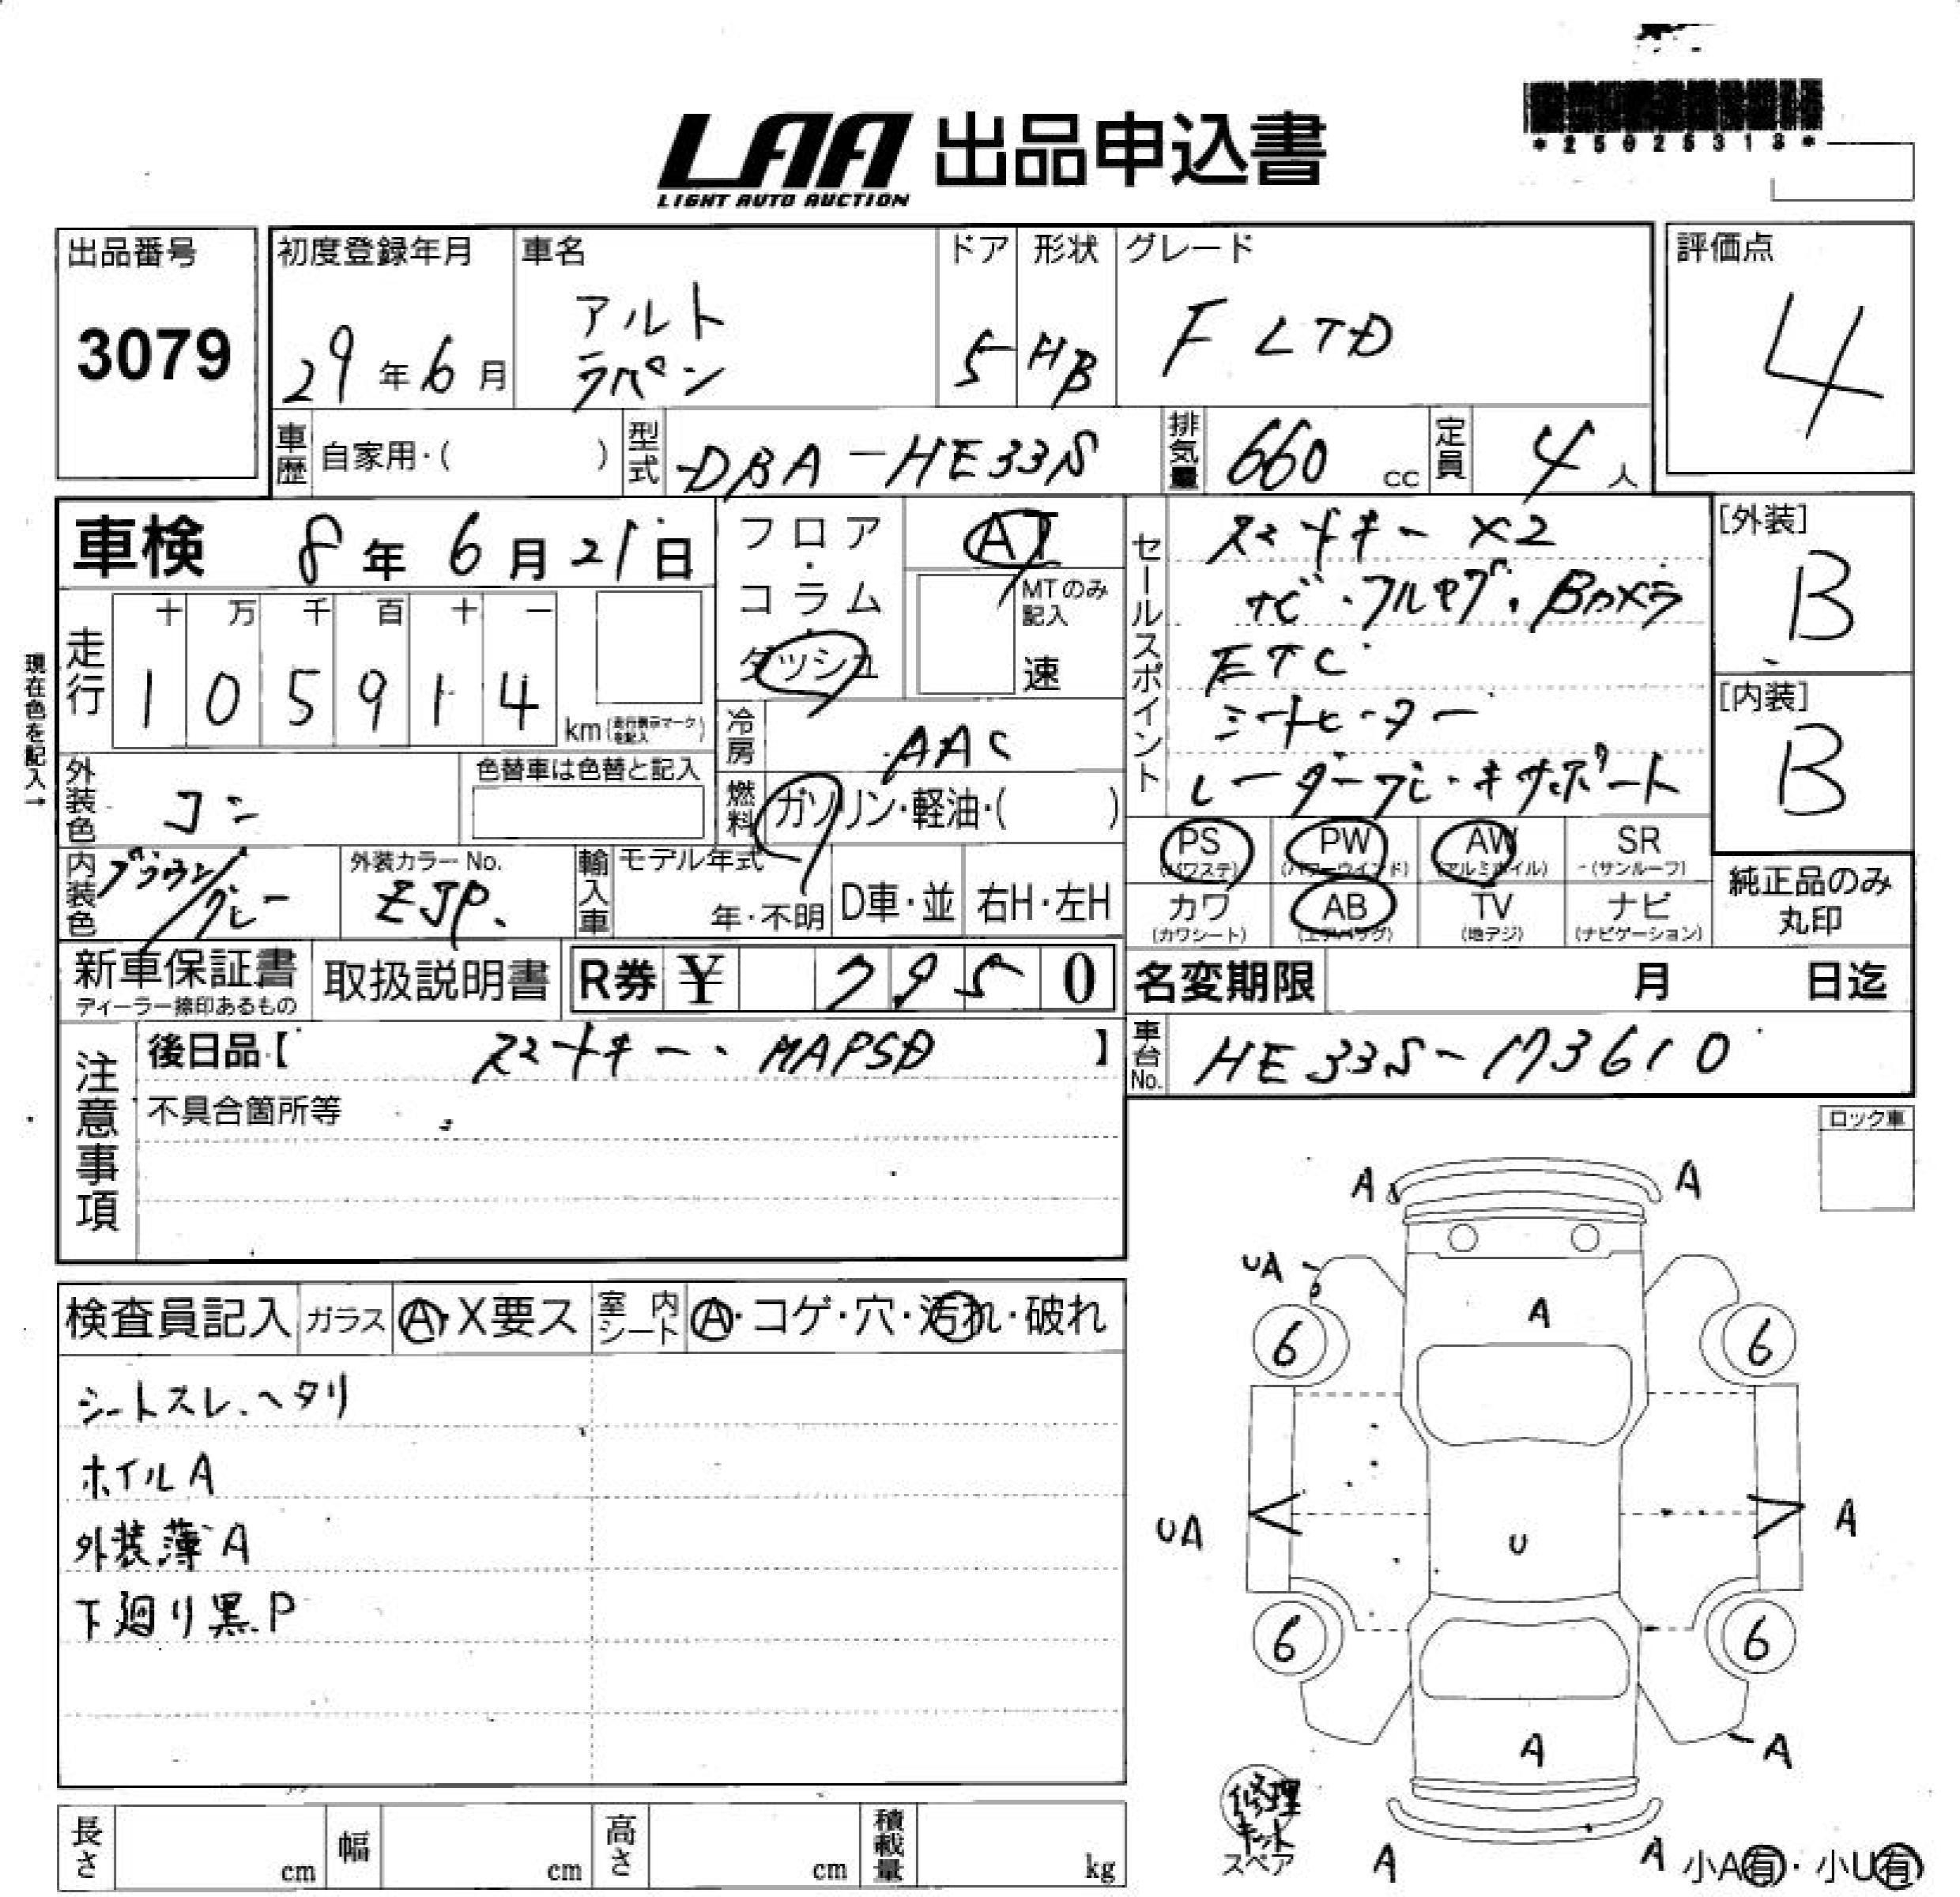 LAA 出品申込書
LIGHT AUTO AUCTION
*25025313*
出品番号
3079
初度登録年月
29年6月
車名
アルト
ラパン
ドア
5
形状
HB
グレード
F LTD
評価点
4
車歴
自家用・( )
型式
DBA-HE33S
排気量
660 cc
定員
4人
車検 8年6月21日
フロア・コラム・ダッシュ
AT
MTのみ記入
速
セールスポイント
スマートキー ×2
ナビ・フルセグ・Bカメラ
ETC
シートヒーター
[外装]
B
[内装]
B
現在色を記入→
走行
十 万 千 百 十 一
1 0 5 9 1 4
km(走行表示マークを記入)
冷房
AAC
燃料
ガソリン・軽油・( )
外装色
コン
色替車は色替と記入
内装色
ブラウン/グレー
外装カラーNo.
ZJP.
輸入車
モデル年式
年・不明
D車・並
右H・左H
PS
(パワステ)
PW
(パワーウインド)
AW
(アルミホイル)
SR
(サンルーフ)
カワ
(カワシート)
AB
(エアバッグ)
TV
(地デジ)
ナビ
(ナビゲーション)
純正品のみ
丸印
新車保証書
ディーラー捺印あるもの
取扱説明書
R券 ¥ 7950
名変期限 月 日迄
車台No.
HE33S-173610
注意事項
後日品【 スマートキー、MAPSD 】
不具合箇所等
ロック車
検査員記入
ガラス
A・X要ス
室内シート
A・コゲ・穴・汚れ・破れ
シートスレ、ヘタリ
ホイルA
外装薄A
下廻り黒P
A A
UA
A
6 6
UA U A
6 6
A A
修理
キット
スペア
A A
小A有・小U有
長さ cm
幅 cm
高さ cm
積載量 kg